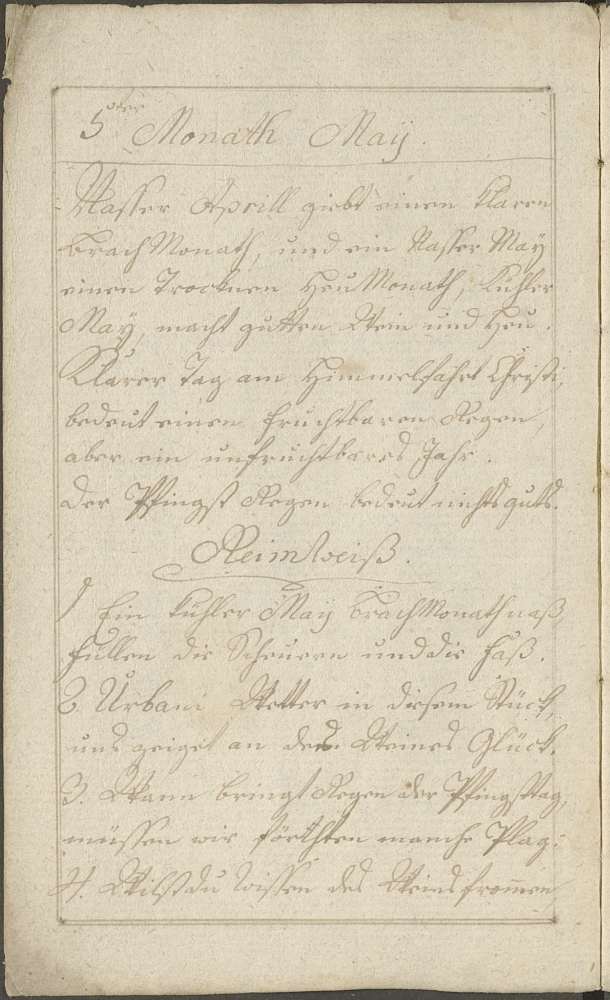 5ter Monath May.
Nasser Aprill giebt einen klaren
brachMonath, und ein Nasser May
einen Trocknen HeuMonath, Kühler
May, macht gutten Wein und Heu.
Klarer Tag am Himmelfahrt Christi,
bedeut einen fruchtbaren Regen,
aber ein unfruchtbares Jahr.
der Pfingst Regen bedeut nichts guts.
Reimweiß.
1 Ein kühler May brachMonath naß,
füllen die Scheuern und die Faß.
2. Urbani Wetter in diesem Stück,
uns zeiget an des Weines Glück.
3. Wann bringt Regen der Pfingsttag,
müssen wir förchten manche Plag:
4. Wilst du wissen des Weins from̄en,